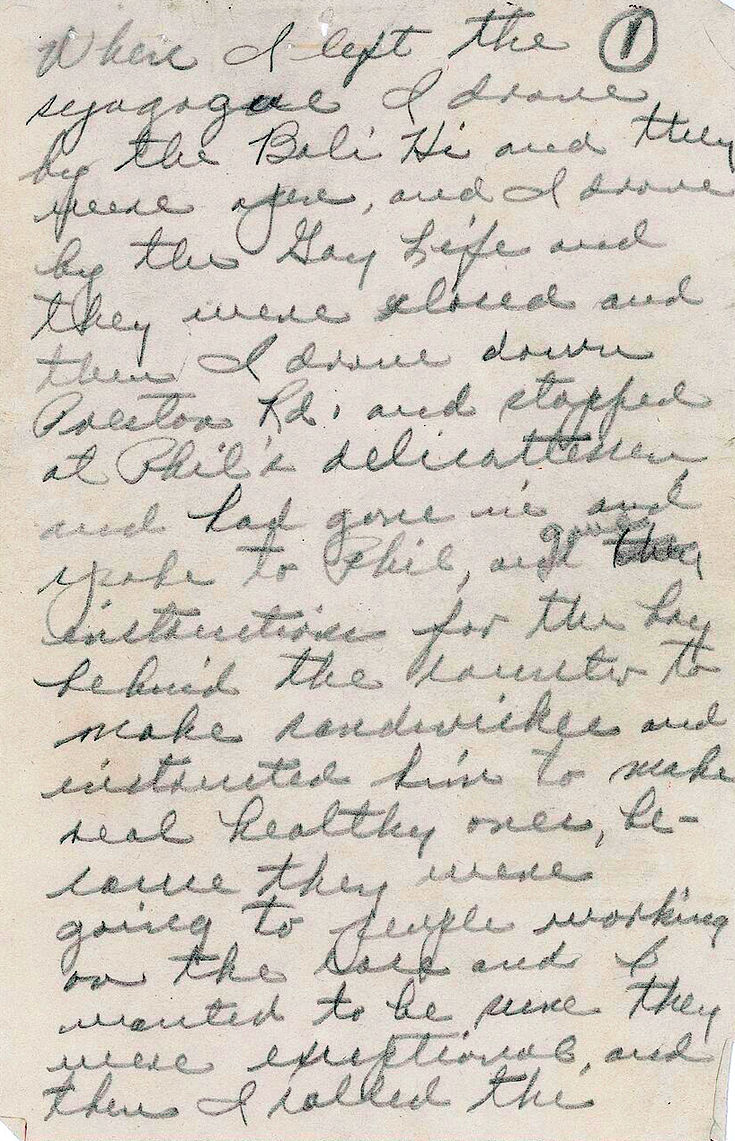 When I left the ①
syagogue I drove
by the Bali Hi and they
were open, and I drove
by the Gay Life and
they were closed and
then I drove down
Preston Rd. and stopped
at Phil's delicattessen,
and had gone in and
spoke to Phil, and gave
instructions for the boy
behind the counter to
make sandwiches and
instructed him to make
real healthy ones, be-
cause they were
going to people working
on the case and I
wanted to be sure they
were exceptional, and
then I called the